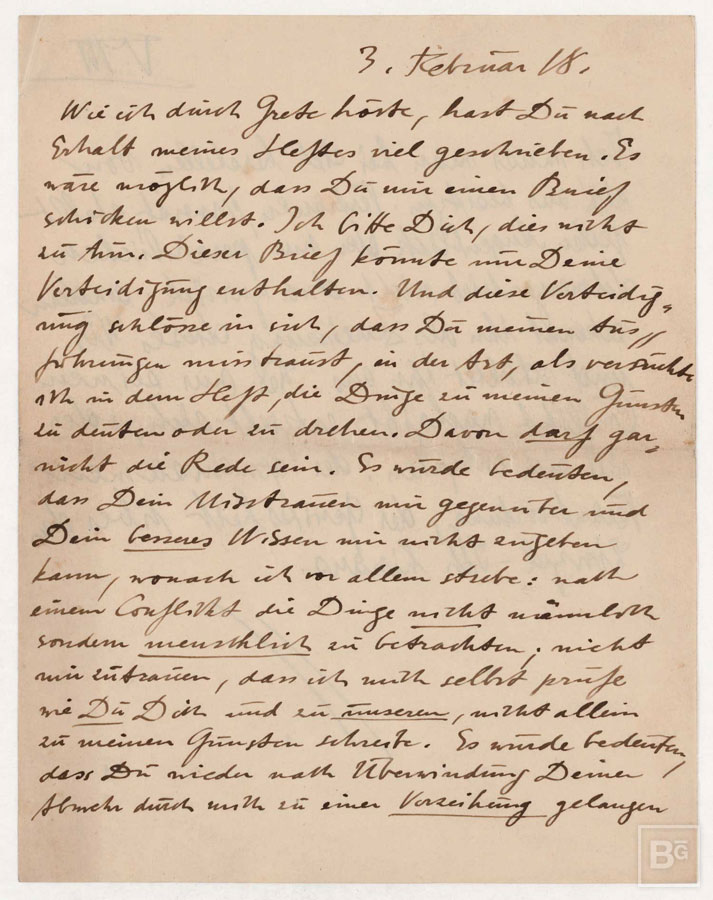 3. Februar 18.
Wie ich durch Grete hörte, hast Du nach
Erhalt meines Heftes viel geschrieben. Es
wäre möglich, dass Du mir einen Brief
schicken willst. Ich bitte Dich, dies nicht
zu tun. Dieser Brief könnte nur Deine
Verteidigung enthalten. Und diese Verteidig-
ung schlösse in sich, dass Du meinen Aus-
führungen misstraust, in der Art, als versuchte
ich in dem Heft, die Dinge zu meinen Gunsten
zu deuten oder zu drehen. Davon darf gar-
nicht die Rede sein. Es würde bedeuten,
dass Dein Misstrauen mir gegenüber und
Dein besseres Wissen mir nicht zugeben
kann, wonach ich vor allem strebe: nach
einem Conflikt die Dinge nicht männlich
sondern menschlich zu betrachten; nicht
mir zutrauen, dass ich mich selbst prüfe
wie Du Dich und zu unseren, nicht allein
zu meinen Gunsten schreibe. Es würde bedeuten,
dass Du wieder nach Überwindung Deiner
Abwehr durch mich zu einer Verzeihung gelangen
BG